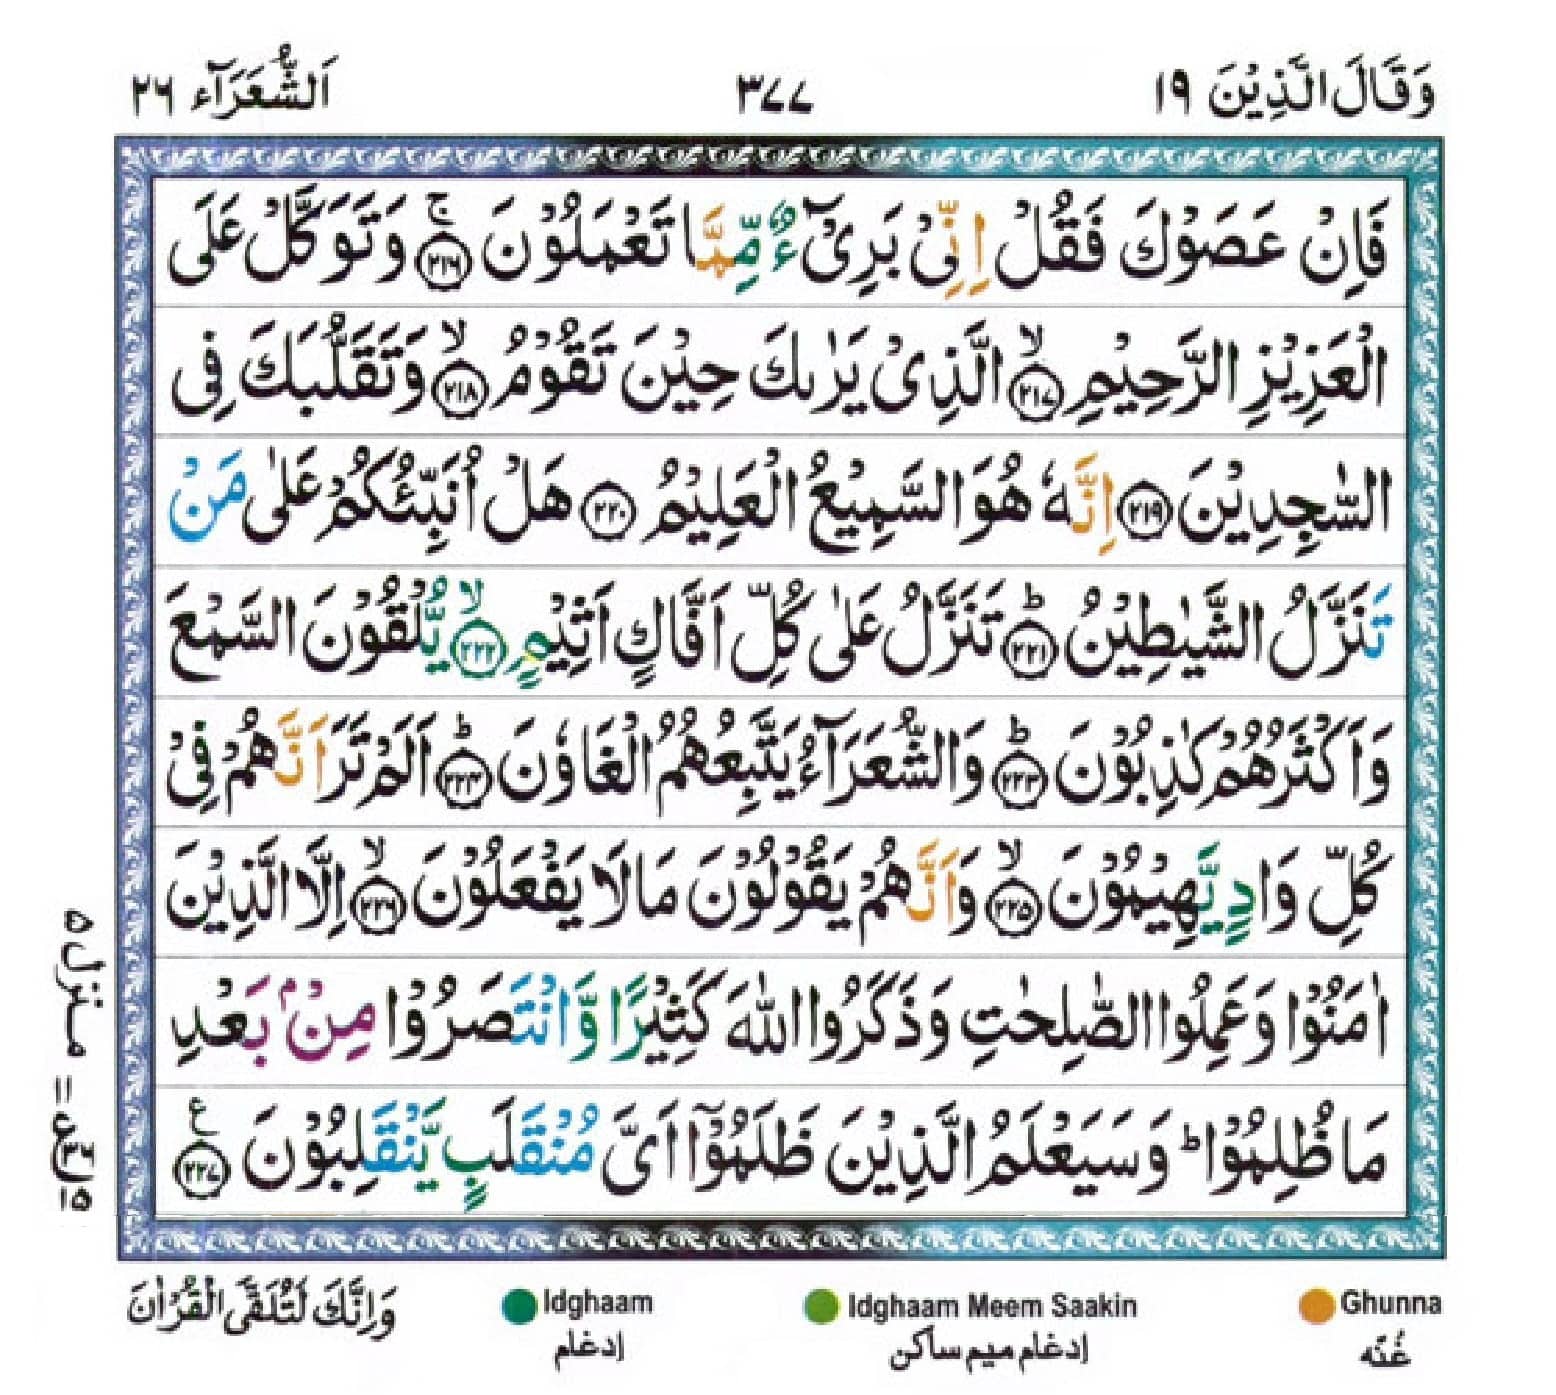 وَقَالَ الَّذِیْنَ ١٩ ٣٧٧ اَلشُّعَرَآء ٢٦
فَاِنْ عَصَوْكَ فَقُلْ اِنِّیْ بَرِیْٓءٌ مِّمَّا تَعْمَلُوْنَ ۚ ﴿٢١٦﴾ وَتَوَكَّلْ عَلَی
الْعَزِیْزِ الرَّحِیْمِ ۙ ﴿٢١٧﴾ الَّذِیْ یَرٰىكَ حِیْنَ تَقُوْمُ ۙ ﴿٢١٨﴾ وَتَقَلُّبَكَ فِی
السّٰجِدِیْنَ ﴿٢١٩﴾ اِنَّهٗ هُوَ السَّمِیْعُ الْعَلِیْمُ ﴿٢٢٠﴾ هَلْ اُنَبِّئُكُمْ عَلٰی مَنْ
تَنَزَّلُ الشَّیٰطِیْنُ ؕ ﴿٢٢١﴾ تَنَزَّلُ عَلٰی كُلِّ اَفَّاكٍ اَثِیْمٍ ۙ ﴿٢٢٢﴾ یُّلْقُوْنَ السَّمْعَ
وَاَكْثَرُهُمْ كٰذِبُوْنَ ؕ ﴿٢٢٣﴾ وَالشُّعَرَآءُ یَتَّبِعُهُمُ الْغَاوٗنَ ؕ ﴿٢٢٤﴾ اَلَمْ تَرَ اَنَّهُمْ فِیْ
كُلِّ وَادٍ یَّهِیْمُوْنَ ۙ ﴿٢٢٥﴾ وَاَنَّهُمْ یَقُوْلُوْنَ مَا لَا یَفْعَلُوْنَ ۙ ﴿٢٢٦﴾ اِلَّا الَّذِیْنَ
اٰمَنُوْا وَعَمِلُوا الصّٰلِحٰتِ وَذَكَرُوا اللّٰهَ كَثِیْرًا وَّانْتَصَرُوْا مِنْۢ بَعْدِ
مَا ظُلِمُوْا ؕ وَسَیَعْلَمُ الَّذِیْنَ ظَلَمُوْۤا اَیَّ مُنْقَلَبٍ یَّنْقَلِبُوْنَ ع ﴿٢٢٧﴾
منزل ٥
وَاِنَّكَ لَتُلَقَّی الْقُرْاٰنَ
Idghaam Idghaam Meem Saakin Ghunna
إدغام إدغام ميم ساكن غُنّه